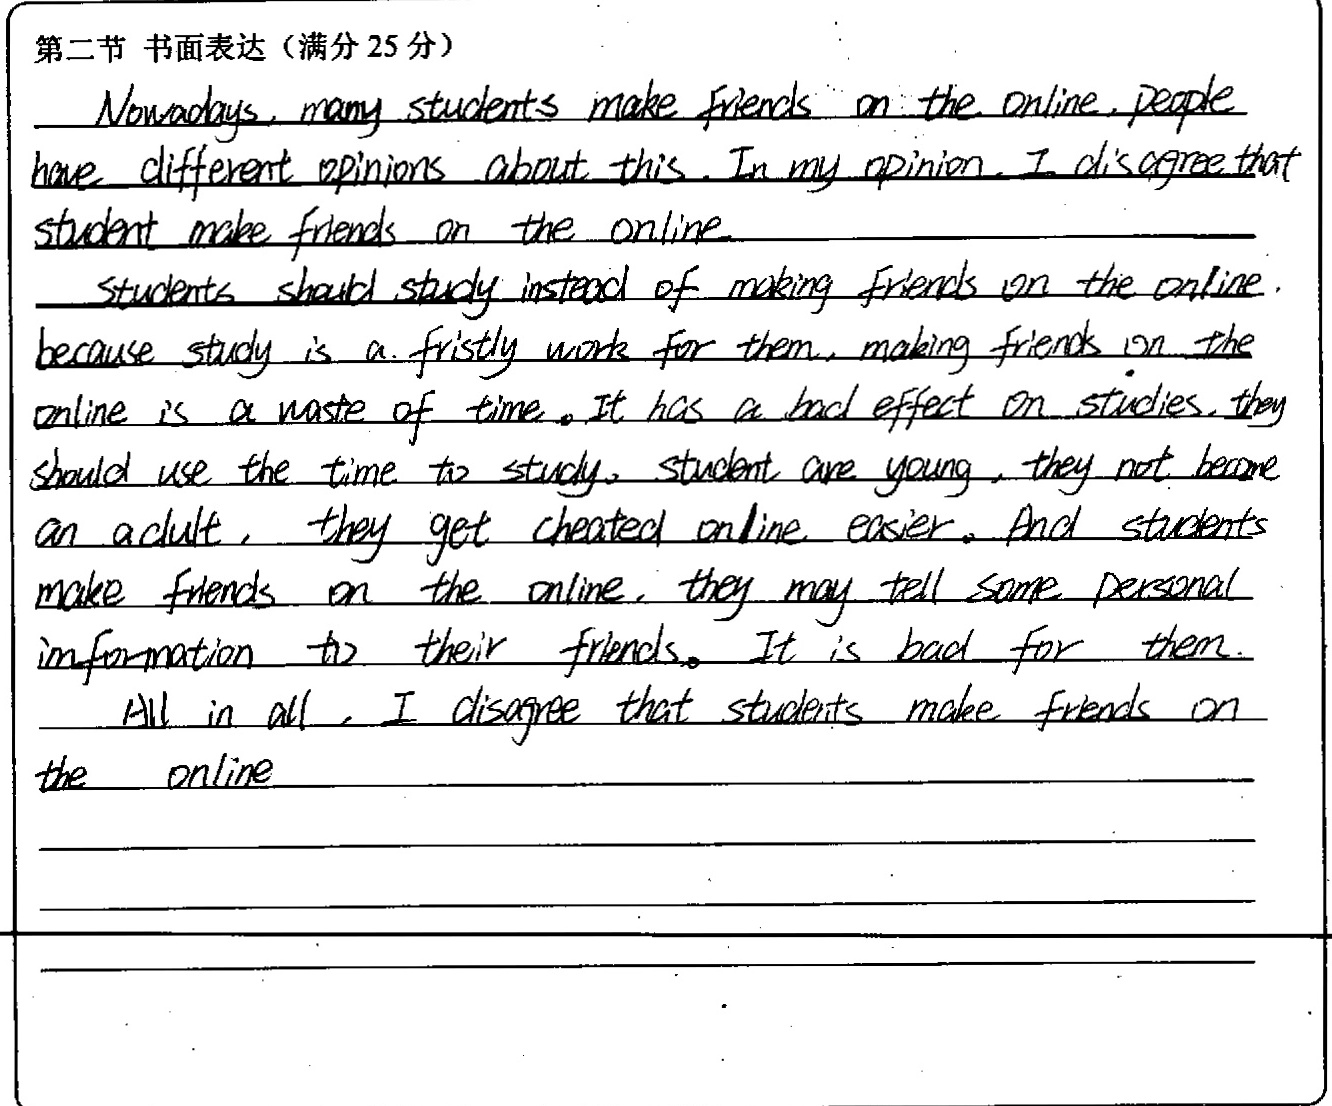 第二节 书面表达（满分 25 分）
Nowadays, many students make friends on the online, people
have different opinions about this. In my opinion, I disagree that
student make friends on the online.
Students should study instead of making friends on the online,
because study is a fristly work for them, making friends on the
online is a waste of time。It has a bad effect on studies, they
should use the time to study。student are young, they not become
an adult, they get cheated online easier。And students
make friends on the online, they may tell some personal
information to their friends。It is bad for them.
All in all, I disagree that students make friends on
the online